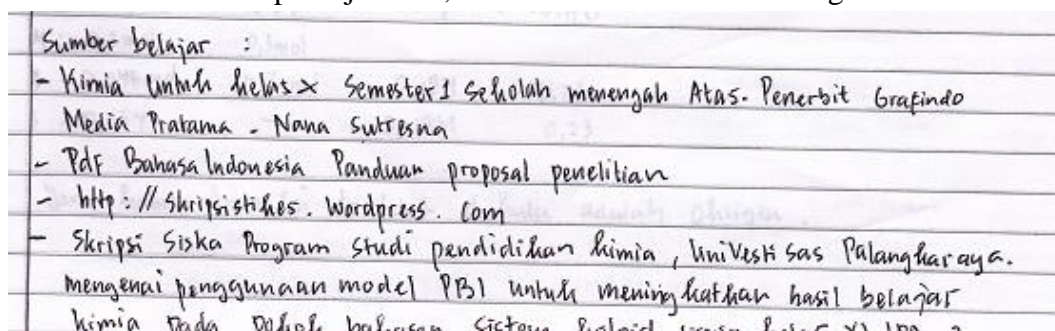 Sumber belajar :
- Kimia untuk kelas X Semester 1 Sekolah menengah Atas. Penerbit Grafindo
Media Pratama - Nana Sutresna
- Pdf Bahasa Indonesia Panduan proposal penelitian
- http://skripsistikes.wordpress.com
- Skripsi Siska Program studi pendidikan kimia, Univestisas Palangkaraya.
mengenai penggunaan model PBI untuk meningkatkan hasil belajar
kimia pada pokok bahasan sistem koloid